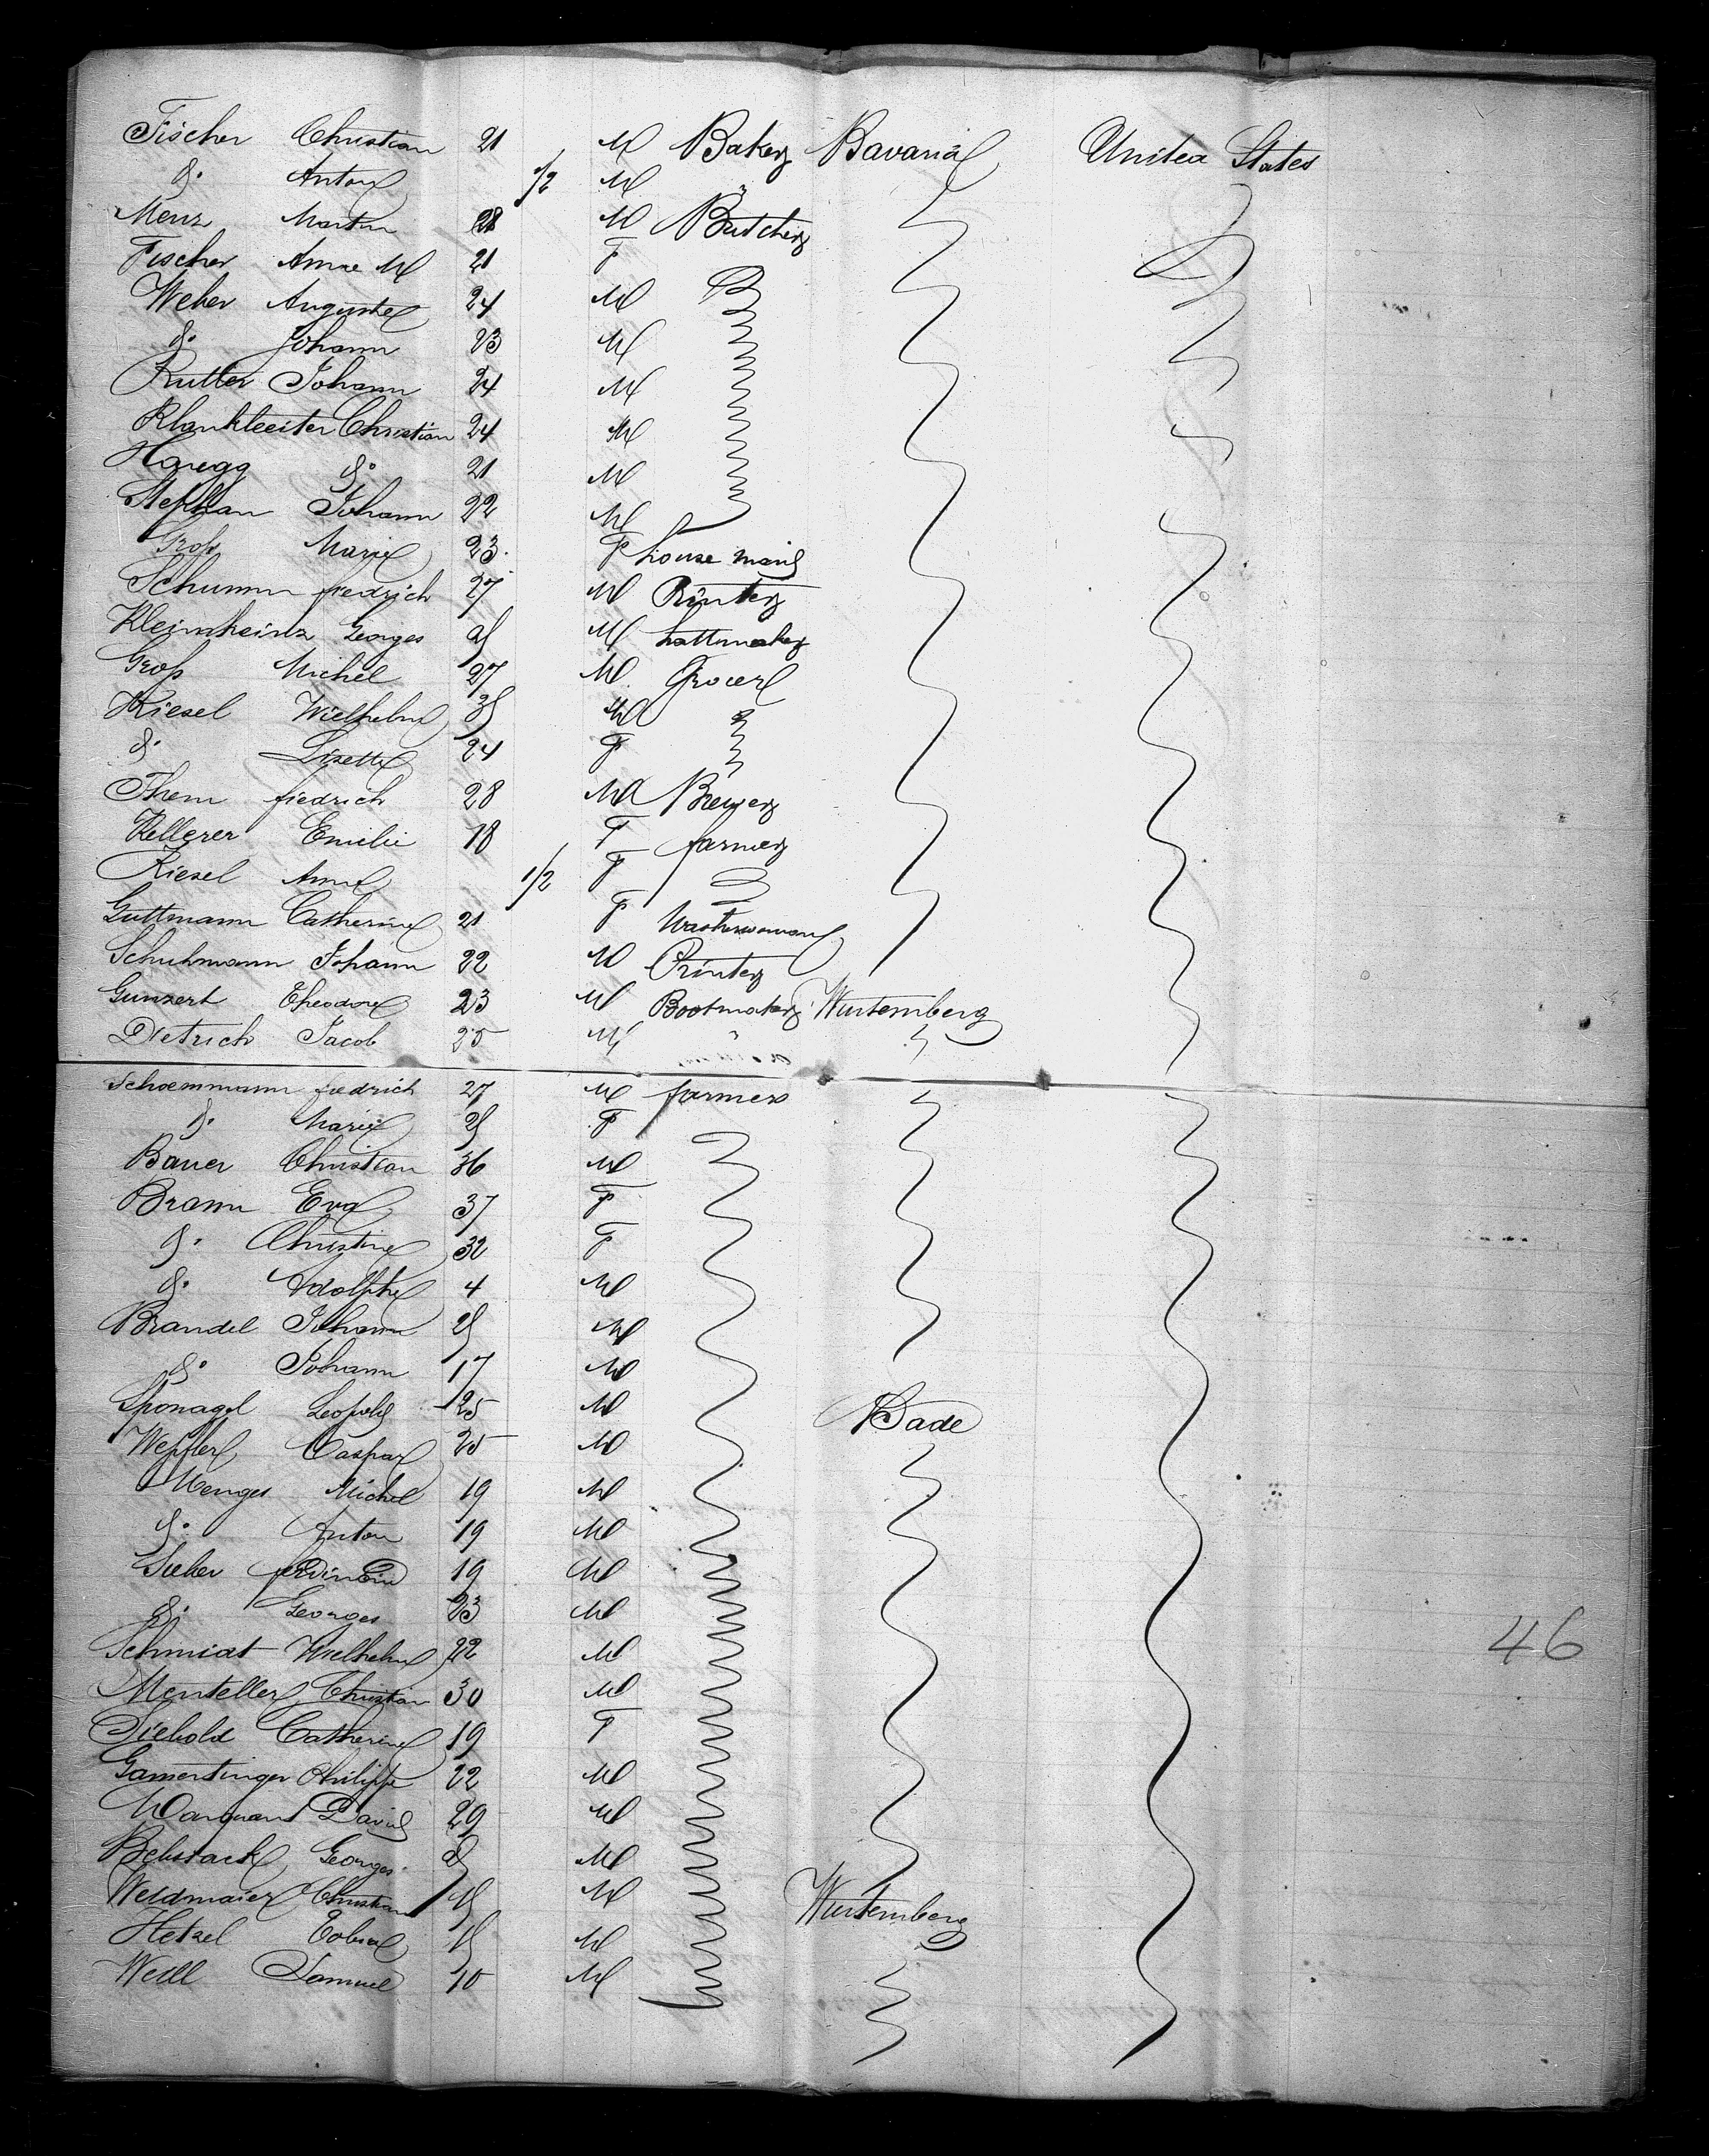 Fischer Christian 21 M Baker Bavaria United States
do Anton 1/2 M "
Menz Martin 28 M Butcher
Fischer Anna M 21 F
Weber Auguste 24 M
do Johann 23 M
Rutter Johann 24 M
Klankleeiter Christian 24 M
Haregg do 21 M
Stephan Johann 22 M
Groß Marie 23 F house maid
Schumm friedrich 27 M Printer
Kleinheinz Georges M hattmaker
Groß Michel 27 M Grocer
Kiesel Wielhelm M
do Lisette 24 F
Them fiedrich 28 M Brewer
Kellerer Emilie 18 F farmer
Kiesel Anna 1/2 F
Guttmann Catherine 21 F Washerwoman
Schuhmann Johann 22 M Printer
Gunzert Theodore 23 M Bootmaker Wurtemberg
Dietrich Jacob 25 M "
Schoemmann fiedrich 27 M farmers
do Marie F
Bauer Christian 36 M
Braun Eva 37 F
do Christine 32 F
do Adolphe 4 M
Brandel Johann M
do Johann 17 M
Sponagel Leopold 25 M Bade
Wepfler Caspar 25 M
Menges Michel 19 M
do Anton 19 M
Sieber ferdinand 19 M
do Georges 23 M
Schmidt Wielhelm 22 M 46
Menteller Christian 30 M
Siebold Catherine 19 F
Gamertinger Philippe 22 M
David 29 M
Bebstack Georges M
Weidmaier Christian M Wurtemberg
Hetzel M
Weill Samuel 10 M